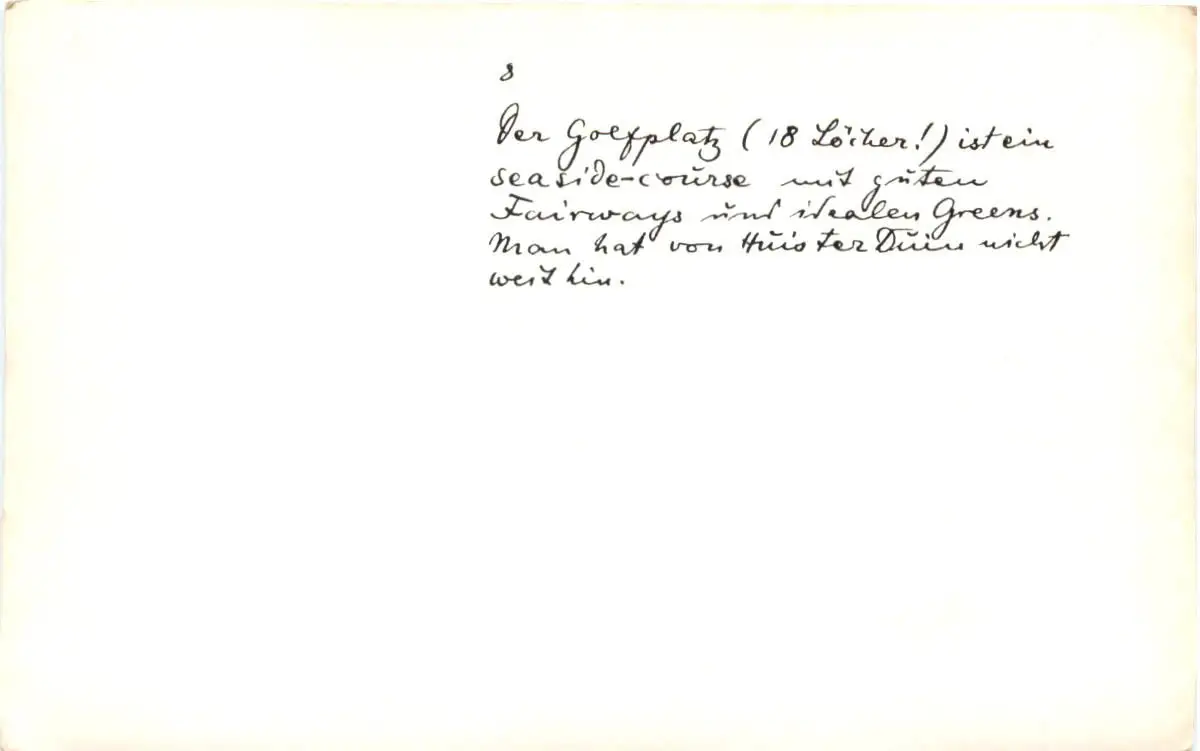 8
Der Golfplatz (18 Löcher!) ist ein
seaside-course mit guten
Fairways und idealen Greens.
Man hat von Huis ter Duin nicht
weit hin.